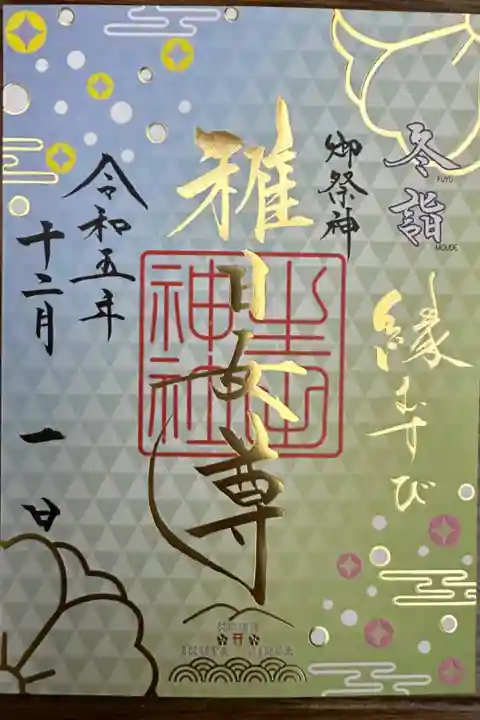 冬詣
FUYU
MOUDE
縁むすび
御祭神
稚日女尊
生田神社
令和五年
十二月一日
KOBE
IKUTA JINJA